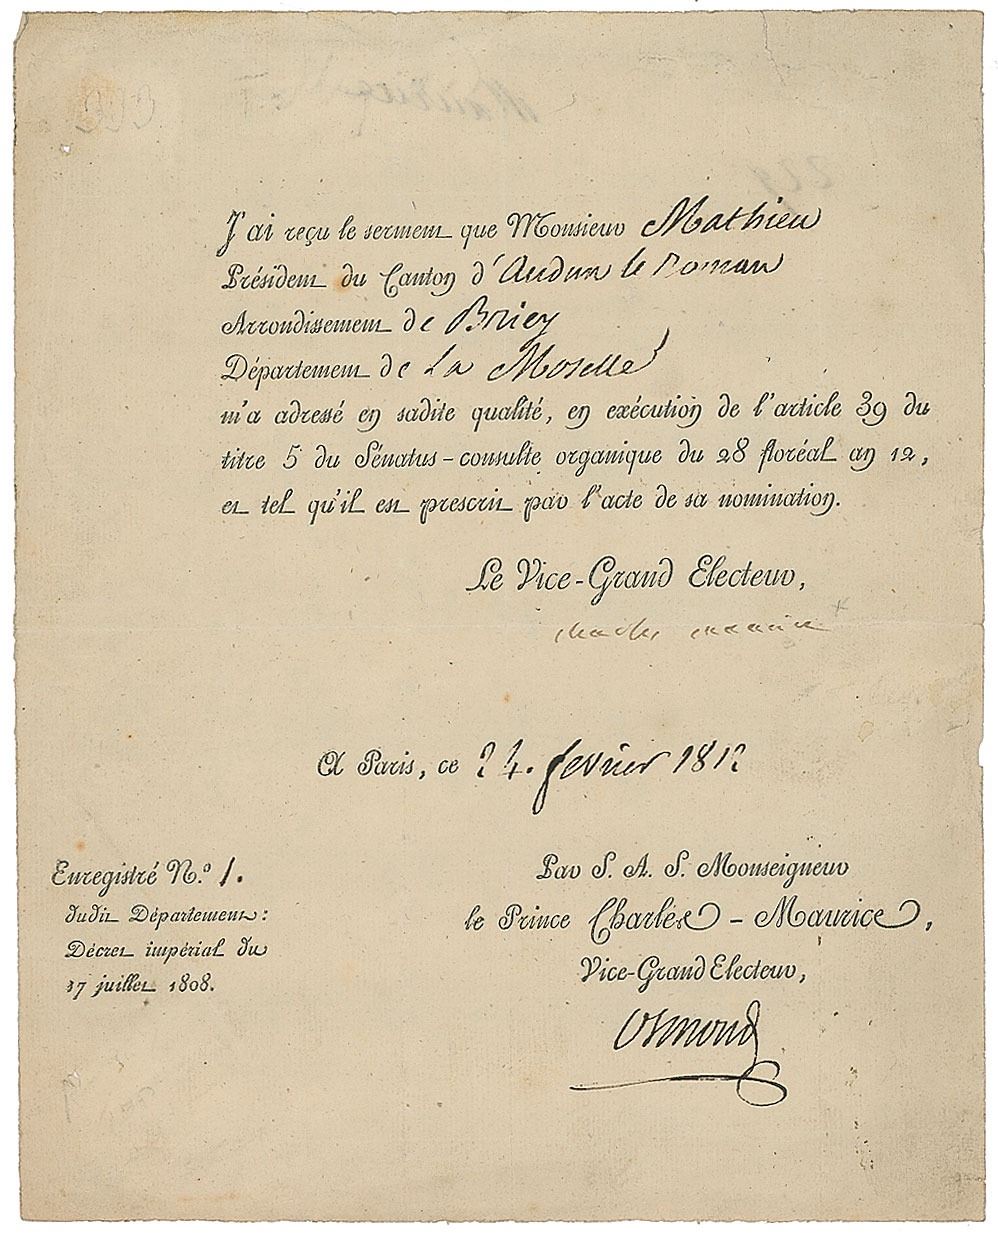 J'ai reçu le serment que Monsieur Mathieu
Président du Canton d'Audun le Roman
Arrondissement de Briey
Département de La Moselle
m'a adressé en sadite qualité, en exécution de l'article 39 du
titre 5 du Sénatus-consulte organique du 28 floréal an 12,
et tel qu'il est prescrit par l'acte de sa nomination.
Le Vice-Grand Electeur,
charles maurice
A Paris, ce 24. fevrier 1812
Enregistré N.º 1.
dudit Département:
Décret impérial du
17 juillet 1808.
Par S. A. S. Monseigneur
le Prince Charles-Maurice,
Vice-Grand Electeur,
Osmond